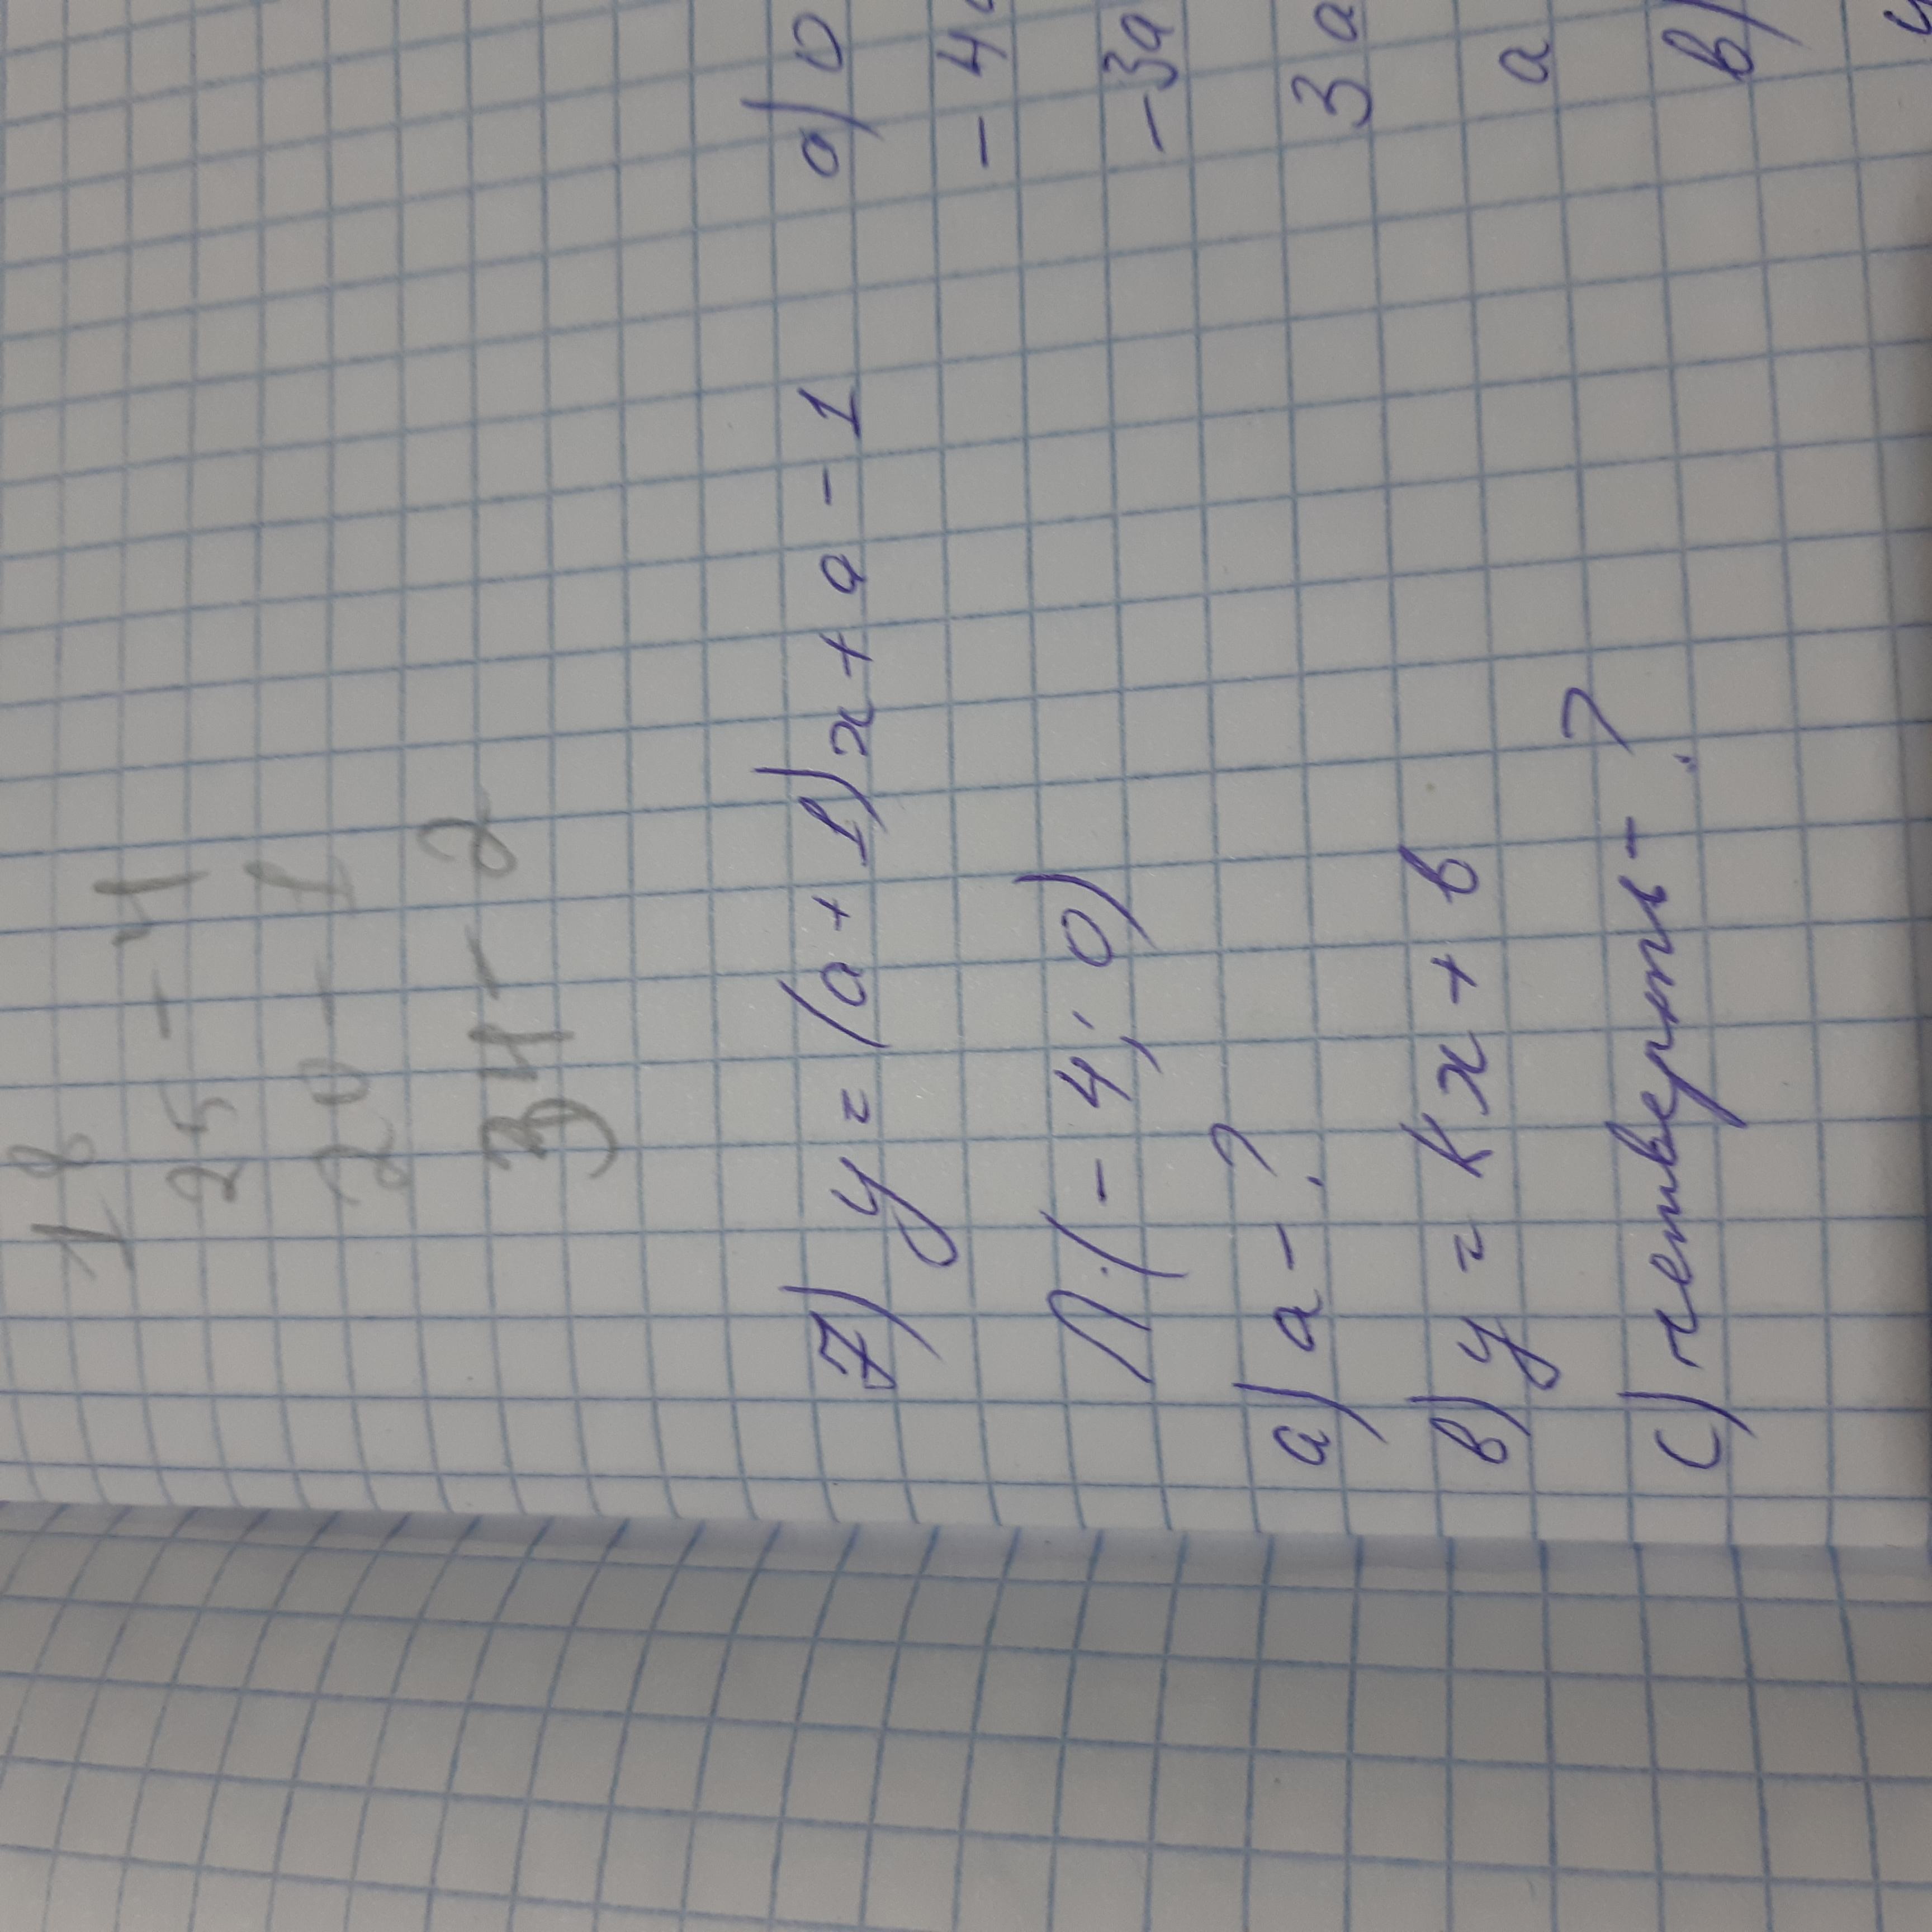 18
25 - 4
20 - 1
34 - 2
7) y = (a + 1)x + a - 1
П.(- 4; 0)
a) a - ?
в) y = кx + в
c) четверть - ?
a) 0
- 4
- 3a
3 a
a
в)